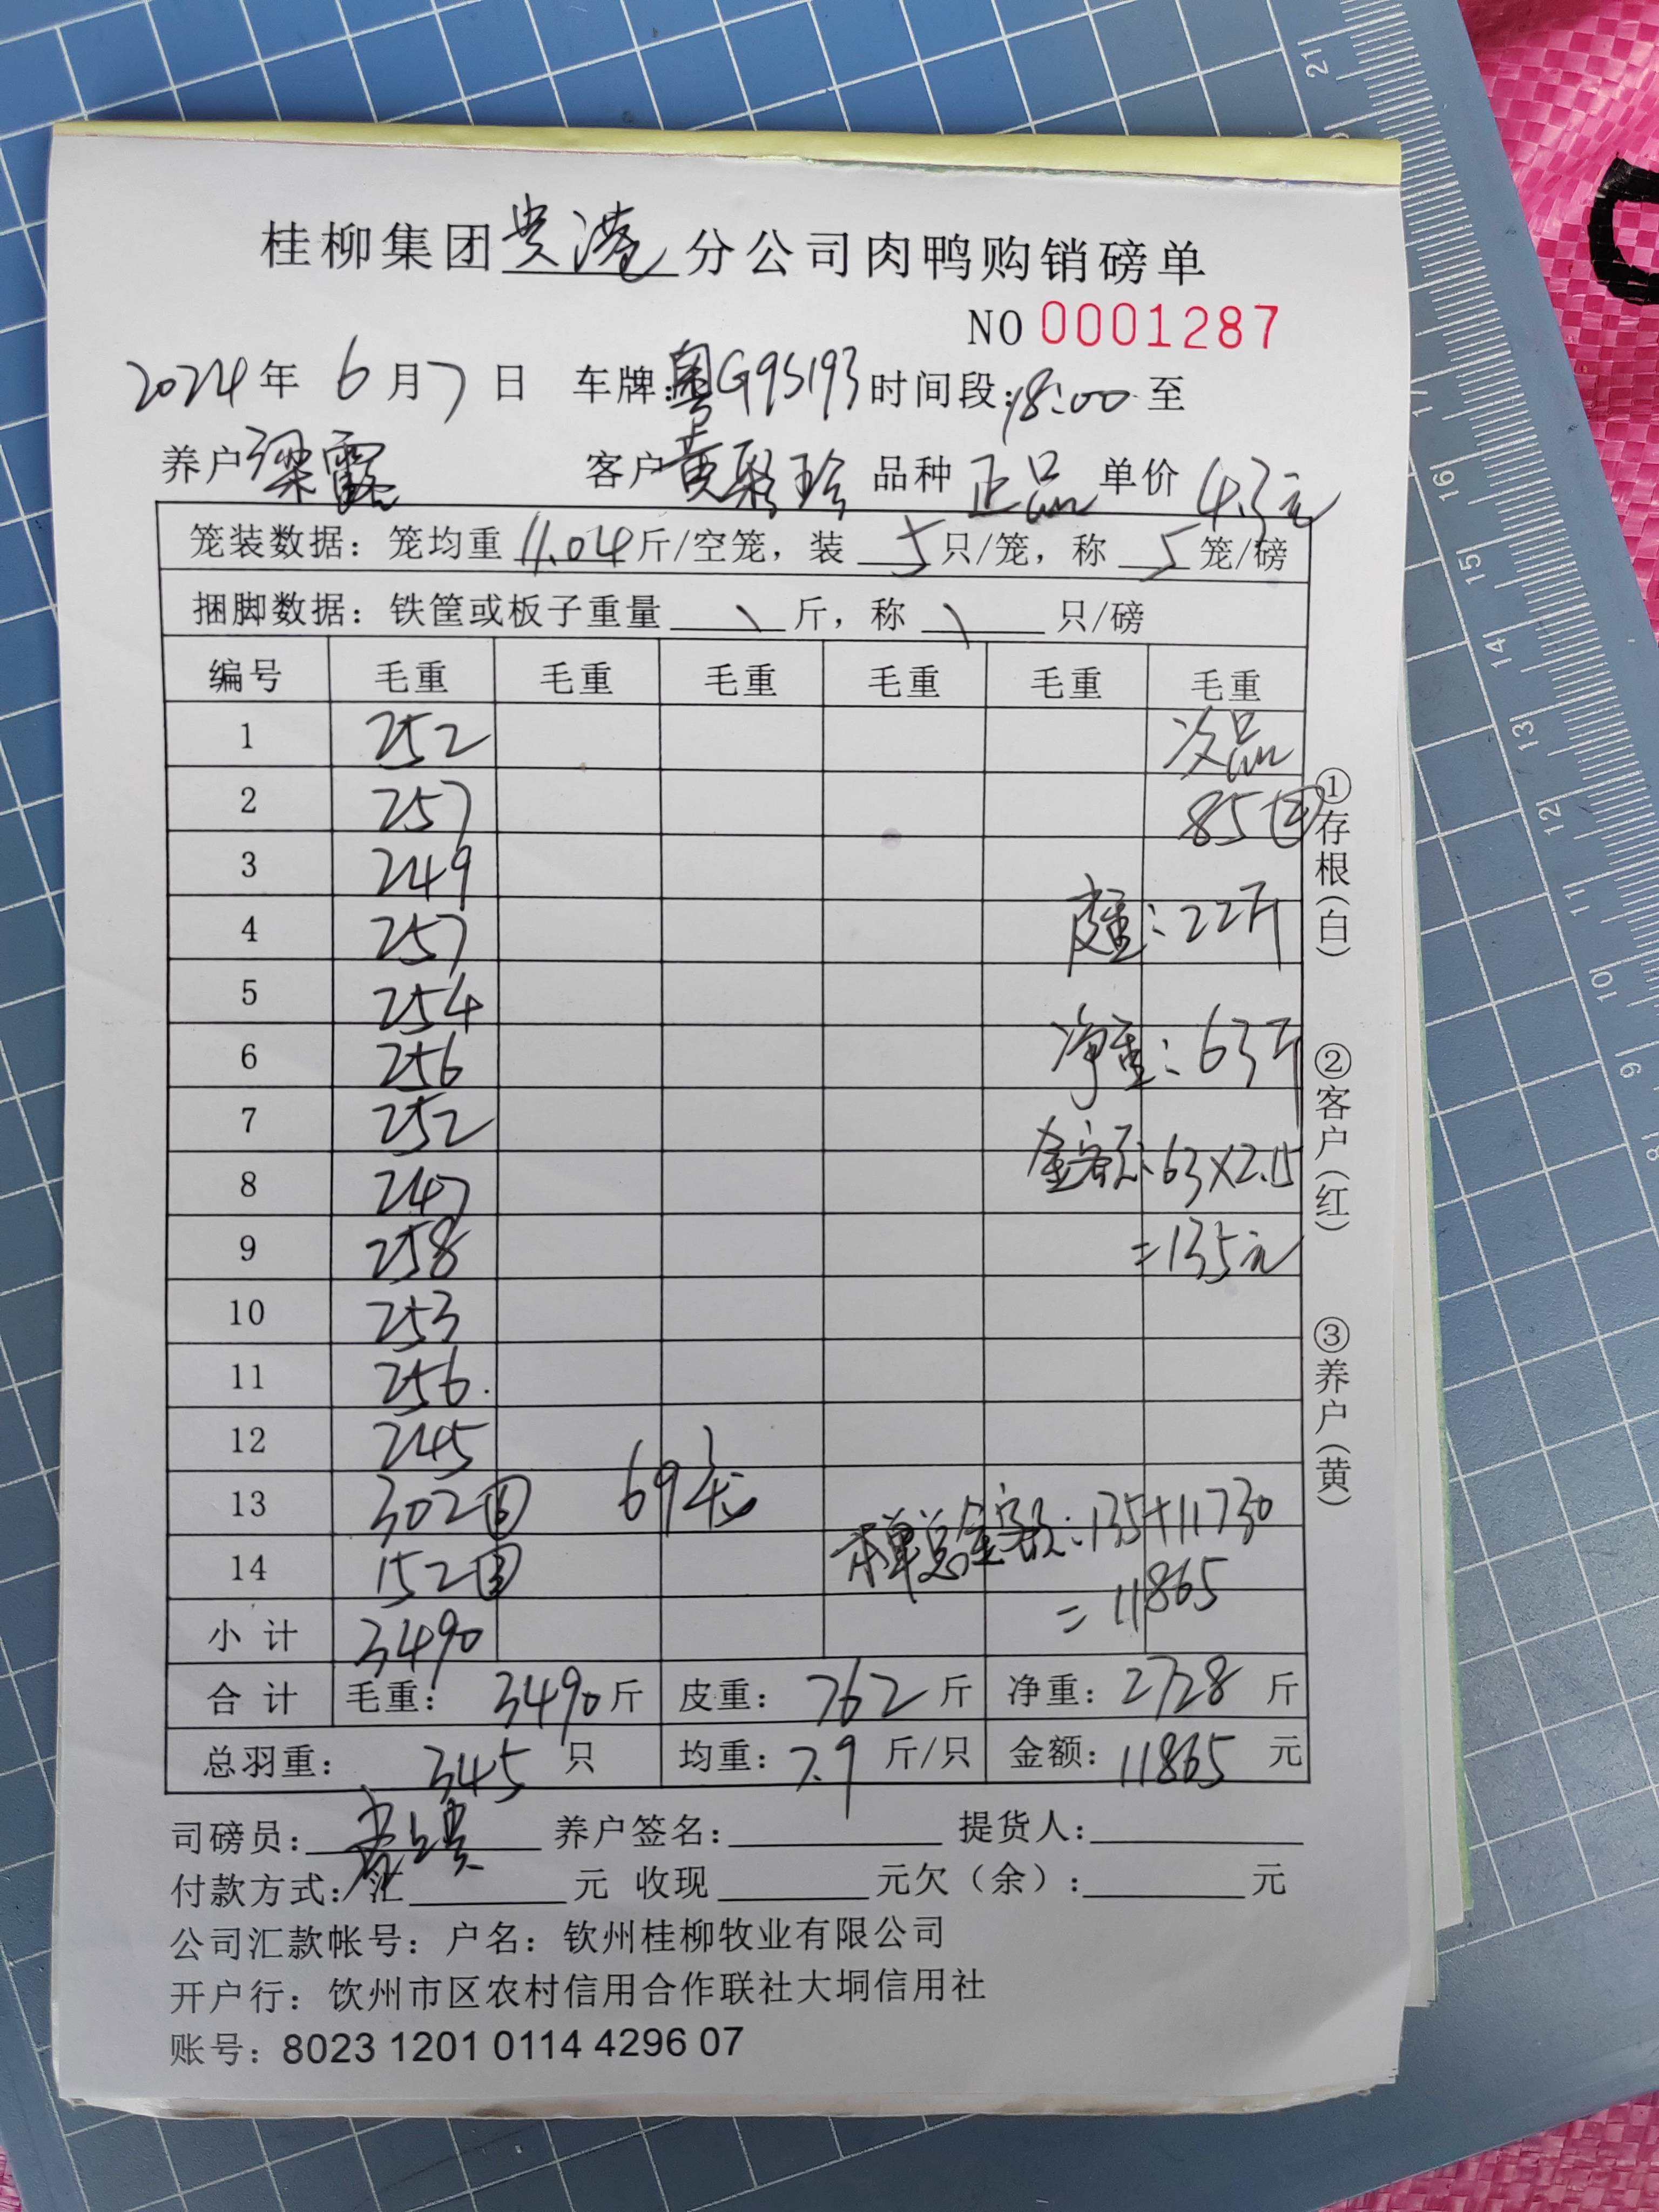 桂柳集团贵港分公司肉鸭购销磅单
NO 0001287
2024年 6月7日 车牌:粤G95193 时间段:18:00 至
养户 梁露 客户 黄聚珍 品种 正品 单价 4.3元
笼装数据：笼均重 11.04 斤/空笼，装 5 只/笼，称 5 笼/磅
捆脚数据：铁筐或板子重量 \ 斤，称 \ 只/磅
编号 毛重 毛重 毛重 毛重 毛重 毛重
1 252 次品
2 257 85②
3 249
4 257 皮重：22斤
5 254
6 256 净重：63斤
7 252
8 247 金额：63×2.15
9 258 =135元
10 253
11 256.
12 245
13 302⑥ 69笼
14 152③ 本单总金额：135+11730
=11865
小计 3490
合计 毛重： 3490 斤 皮重： 762 斤 净重： 2728 斤
总羽重： 345 只 均重： 7.9 斤/只 金额： 11865 元
司磅员： 养户签名： 提货人：
付款方式：汇 元 收现 元欠（余）： 元
公司汇款帐号：户名：钦州桂柳牧业有限公司
开户行：钦州市区农村信用合作联社大垌信用社
账号：8023 1201 0114 4296 07
①存根（白）
②客户（红）
③养户（黄）
21
17
16
15
14
13
12
11
10
9
8